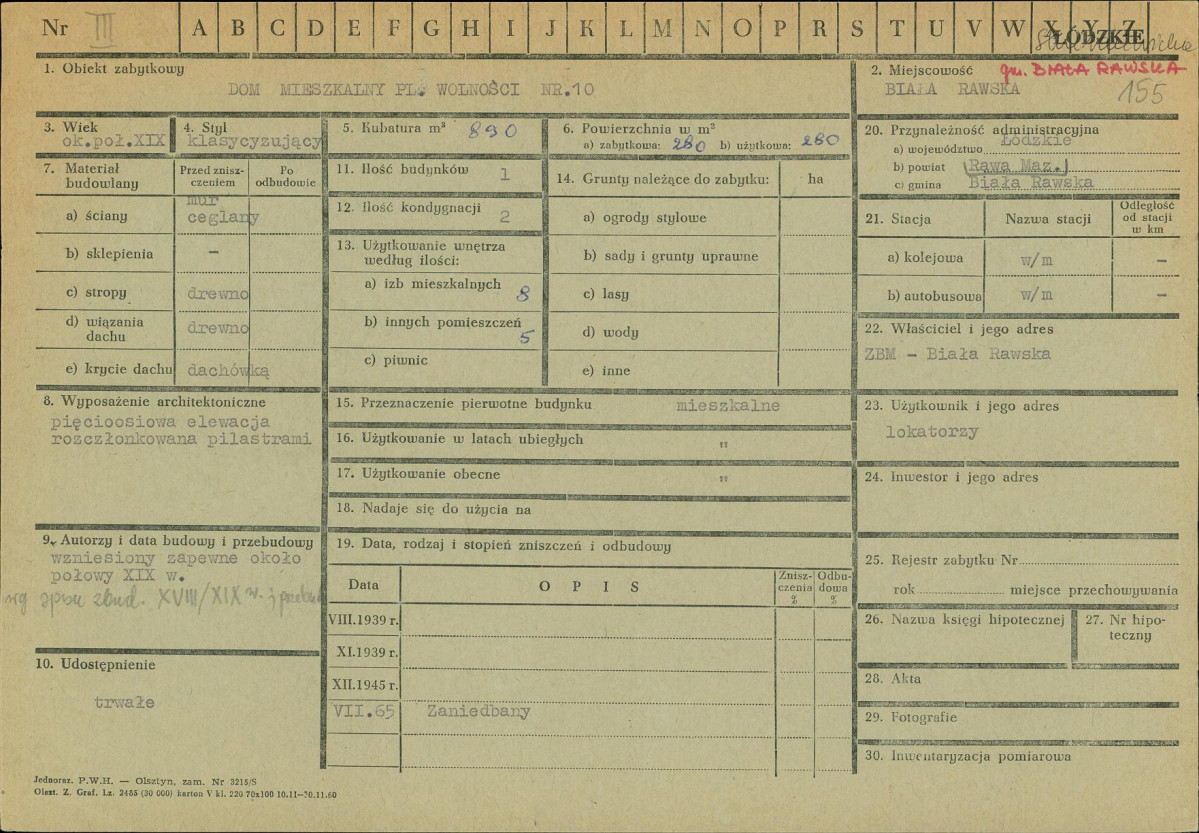 Nr III A B C D E F G H I J K L M N O P R S T U V W X Y Z ŁÓDZKIE
1. Obiekt zabytkowy
DOM MIESZKALNY PL. WOLNOŚCI NR.10
2. Miejscowość gm. BIAŁA RAWSKA
BIAŁA RAWSKA 155
3. Wiek
ok.poł.XIX
4. Styl
klasycyzujący
5. Kubatura m³ 890
6. Powierzchnia w m²
a) zabytkowa: 280 b) użytkowa: 280
7. Materiał budowlany
Przed zniszczeniem
Po odbudowie
a) ściany mur ceglany
b) sklepienia –
c) stropy drewno
d) wiązania dachu drewno
e) krycie dachu dachówką
8. Wyposażenie architektoniczne
pięcioosiowa elewacja
rozczłonkowana pilastrami
9. Autorzy i data budowy i przebudowy
wzniesiony zapewne około
połowy XIX w.
wg spisu zbud. XVIII/XIX w. i przebud.
10. Udostępnienie
trwałe
11. Ilość budynków 1
12. Ilość kondygnacji 2
13. Użytkowanie wnętrza
według ilości:
a) izb mieszkalnych 8
b) innych pomieszczeń 5
c) piwnic
14. Grunty należące do zabytku: ha
a) ogrody stylowe
b) sady i grunty uprawne
c) lasy
d) wody
e) inne
15. Przeznaczenie pierwotne budynku mieszkalne
16. Użytkowanie w latach ubiegłych "
17. Użytkowanie obecne "
18. Nadaje się do użycia na
19. Data, rodzaj i stopień zniszczeń i odbudowy
Data OPIS Zniszczenia % Odbudowa %
VIII.1939 r.
XI.1939 r.
XII.1945 r.
VII.65 Zaniedbany
20. Przynależność administracyjna
a) województwo Łódzkie
b) powiat (Rawa Maz.)
c) gmina Biała Rawska
21. Stacja Nazwa stacji Odległość od stacji w km
a) kolejowa w/m –
b) autobusowa w/m –
22. Właściciel i jego adres
ZBM – Biała Rawska
23. Użytkownik i jego adres
lokatorzy
24. Inwestor i jego adres
25. Rejestr zabytku Nr
rok miejsce przechowywania
26. Nazwa księgi hipotecznej
27. Nr hipoteczny
28. Akta
29. Fotografie
30. Inwentaryzacja pomiarowa
Jednoraz. P.W.H. — Olsztyn, zam. Nr 3215/S
Olszt. Z. Graf. Lz. 2455 (30 000) karton V kl. 220 70x100 10.11—30.11.60